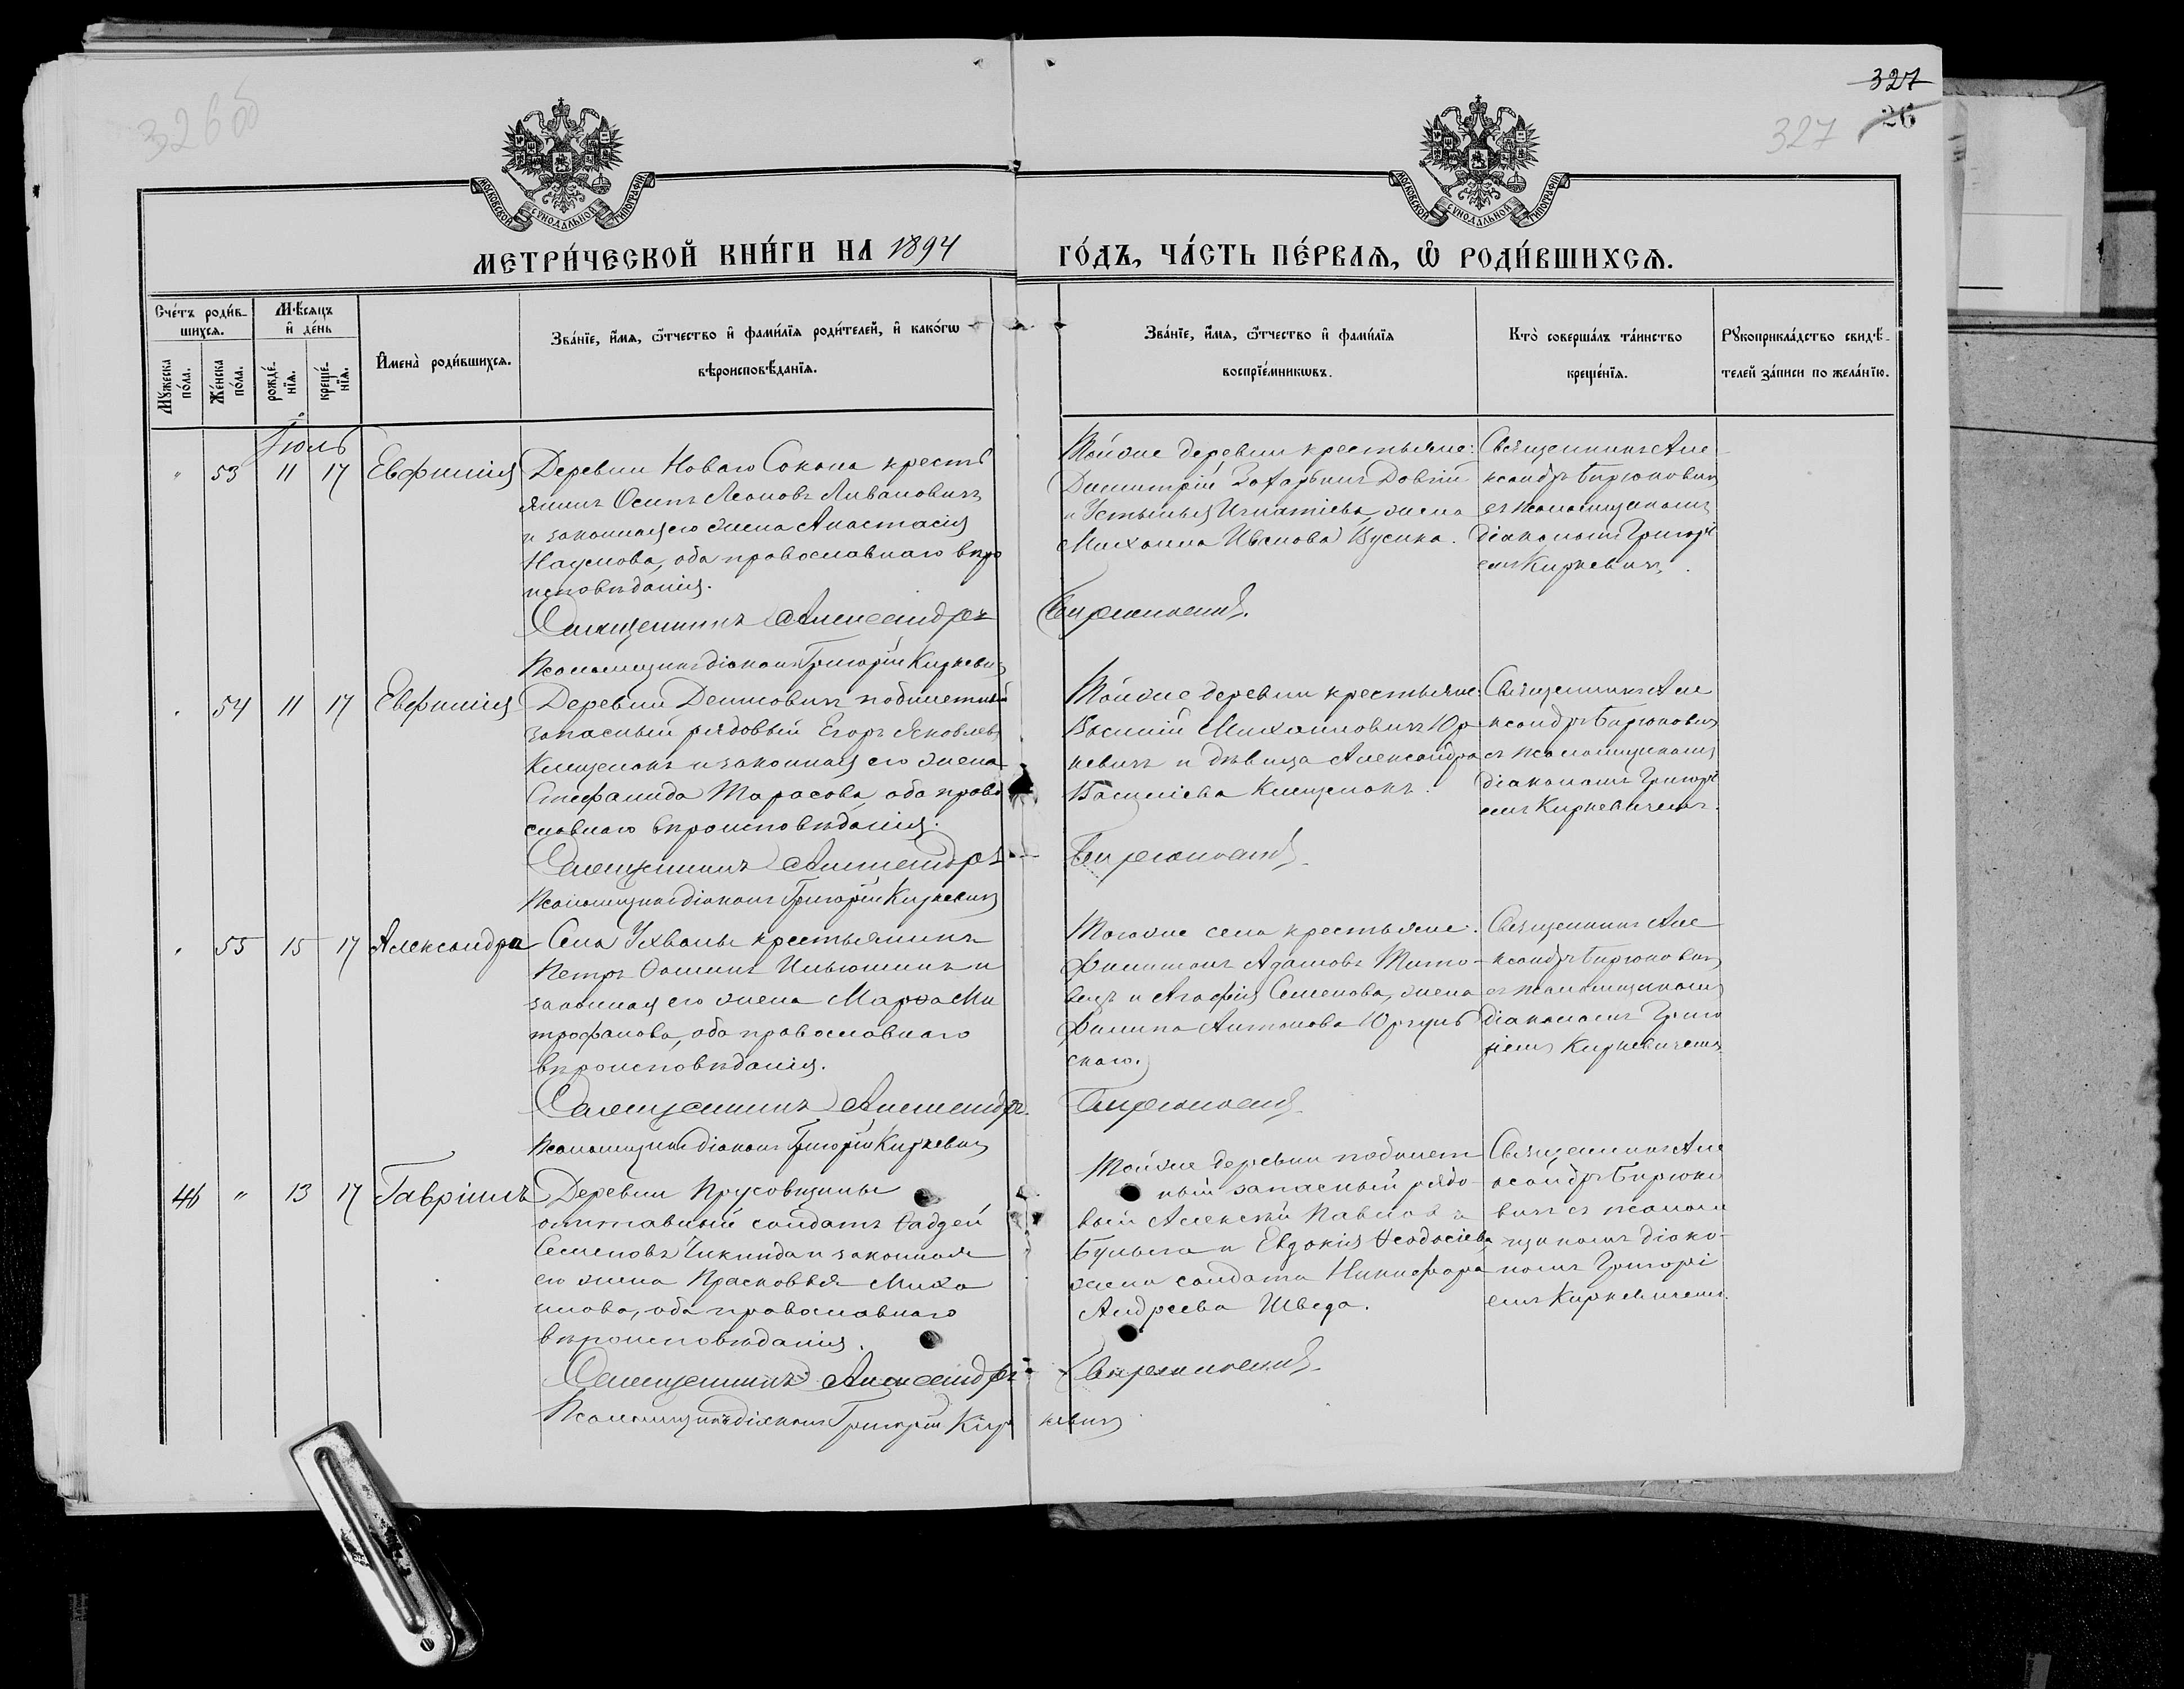 326 об
327
327
26
МОСКОВСКОЙ СѴНОДАЛЬНОЙ ТИПОГРАФІИ
МОСКОВСКОЙ СѴНОДАЛЬНОЙ ТИПОГРАФІИ
МЕТРИ́ЧЕСКОЙ КНИ́ГИ НА 1894 ГО́ДЪ, ЧА́СТЬ ПЕ́РВАѦ, Ѡ҆ РОДИ́ВШИХСѦ.
Сче́тъ роди́вшихсѧ.
Мꙋ́жеска по́ла.
Же́нска по́ла.
Мѣ́сѧцъ и҆ де́нь
рожде́нїѧ.
креще́нїѧ.
И҆мена̀ роди́вшихсѧ.
Зва́нїе, и҆́мѧ, ѻ҆́тчество и҆ фами́лїѧ роди́телей, и҆ како́гѡ
вѣроисповѣ́данїѧ.
Зва́нїе, и҆́мѧ, ѻ҆́тчество и҆ фами́лїѧ
воспрїе́мникѡвъ.
Кто̀ соверша́лъ та́инство
креще́нїѧ.
Рꙋкоприкла́дство свидѣ́-
телей за́писи по жела́нїю.
Іюль
" 53 11 17 Евфимія
Деревни Новаго Сокола кресть
янинъ Осипъ Леоновъ Ливановичъ
и законная его жена Анастасія
Наумова, оба православнаго вѣро
исповѣданія.
Священникъ Александръ Бирюковичъ.
Псаломщикъ діаконъ Григорій Киркевичъ
Той же деревни крестьяне:
Димитрій Захарьинъ Довгій
и Устинья Игнатіева, жена
Михаила Иванова Кусика.
Священникъ Але
ксандръ Бирюковичъ
съ псаломщикомъ
діакономъ Григорі
емъ Киркевичъ.
" 54 11 17 Евфимія
Деревни Денисовичъ побилетный
запасный рядовый Егоръ Яковлевъ
Клещенокъ и законная его жена
Стефанида Тарасова, оба право
славнаго вѣроисповѣданія.
Священникъ Александръ Бирюковичъ
Псаломщикъ діаконъ Григорій Киркевичъ
Той же деревни крестьяне:
Василій Михаиловичъ Юр
кевичъ и дѣвица Александра
Василіева Клещенокъ.
Священникъ Але
ксандръ Бирюковичъ
съ псаломщикомъ
діакономъ Григорі
емъ Киркевичемъ.
" 55 15 17 Александра
Села Ухвалы крестьянинъ
Петръ Ѳоминъ Ильюшинъ и
законная его жена Марѳа Ми
трофанова, оба православнаго
вѣроисповѣданія.
Священникъ Александръ Бирюковичъ
Псаломщикъ діаконъ Григорій Киркевичъ
Того же села крестьяне:
Филимонъ Адамовъ Тито
вецъ и Агафія Семенова, жена
Филипа Антонова
скаго.
Священникъ Але
ксандръ Бирюковичъ
съ псаломщикомъ
діакономъ Григо
ріемъ Киркевичемъ
46 " 13 17 Гавріилъ
Деревни Прусовщины
отставный солдатъ Ѳаддей
Семеновъ Чикинда и законная
его жена Прасковья Миха
илова, оба православнаго
вѣроисповѣданія.
Священникъ Александръ Бирюковичъ
Псаломщикъ діаконъ Григорій Киркевичъ
Той же деревни побилет
ный запасный рядо
вый Алексѣй Павловъ
Бульга и Евдокія Ѳеодосіева,
жена солдата Никифора
Андреева Шведа.
Священникъ Але
ксандръ Бирюко
вичъ съ псалом
щикомъ діако-
номъ Григорі
емъ Киркевичемъ.